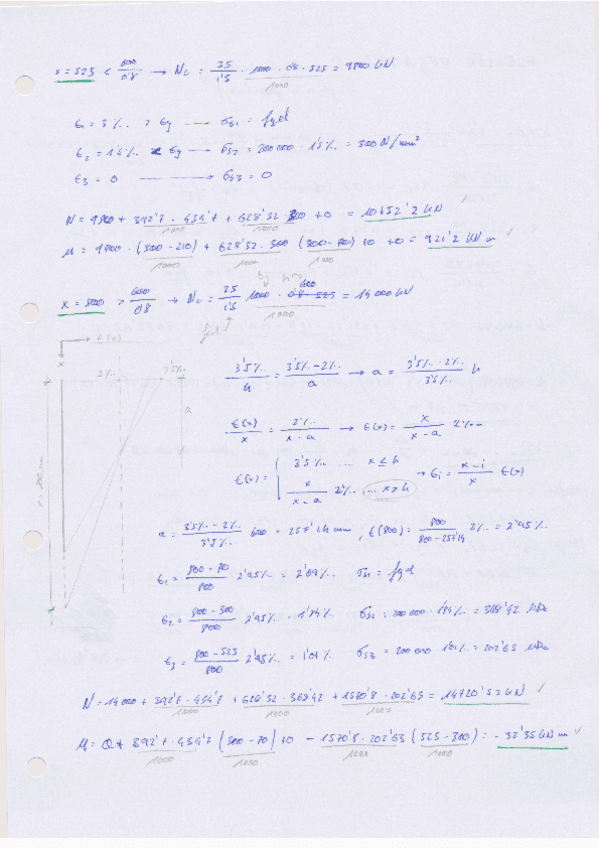 x = 525 < 600/0'8 → Nc = 35/1'5 · 1000 · 0'8 · 525 / 1000 = 9800 kN
ε1 = 3‰ > εy → σs1 = fyd
ε2 = 1'5‰ < εy → σs2 = 200000 · 1'5‰ = 300 N/mm²
ε3 = 0 → σs3 = 0
N = 9800 + 392'7 · 434'7 / 1000 + 628'32 · 300 / 1000 + 0 = 10652'2 kN ✓
M = 9800 · (300 - 210) / 1000 + 628'32 · 300 / 1000 (300 - 70) / 1000 + 0 = 921'2 kN m ✓
x = 800 > 600/0'8 → Nc = 35/1'5 1000 · 600 / 1000 = 14000 kN
fcd
x
ε(x)
2‰ 3'5‰
a
3'5‰/h = 3'5‰ - 2‰/a → a = 3'5‰ - 2‰/3'5‰ h
ε(x)/x = 2‰/x - a → ε(x) = x/x - a 2‰
ε(x) = { 3'5‰ ... x ≤ h
x/x - a 2‰ ... x > h → εi = x - i/x ε(x)
a = 3'5‰ - 2‰/3'5‰ 600 = 257'14 mm ; ε(800) = 800/800 - 257'14 2‰ = 2'95‰
ε1 = 800 - 70/800 2'95‰ = 2'69‰ σs1 = fyd
ε2 = 800 - 300/800 2'95‰ = 1'84‰ σs2 = 200000 · 1'84‰ = 368'42 MPa
ε3 = 800 - 525/800 2'95‰ = 1'01‰ σs3 = 200000 · 1'01‰ = 202'63 MPa
N = 14000 + 392'7 · 434'7 / 1000 + 628'32 · 368'42 / 1000 + 1570'8 · 202'63 / 1000 = 14720'5 kN ✓
M = 0 + 392'7 · 434'7 / 1000 (300 - 70) / 1000 + 0 - 1570'8 · 202'63 / 1000 (525 - 300) / 1000 = - 32'35 kN m ✓